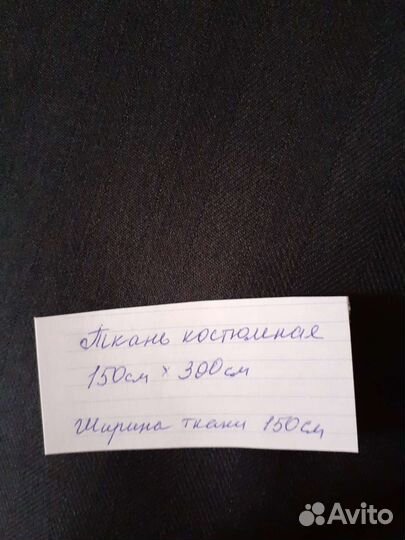 Ткань костюмная
150см х 300см
Ширина ткани 150см
Avito